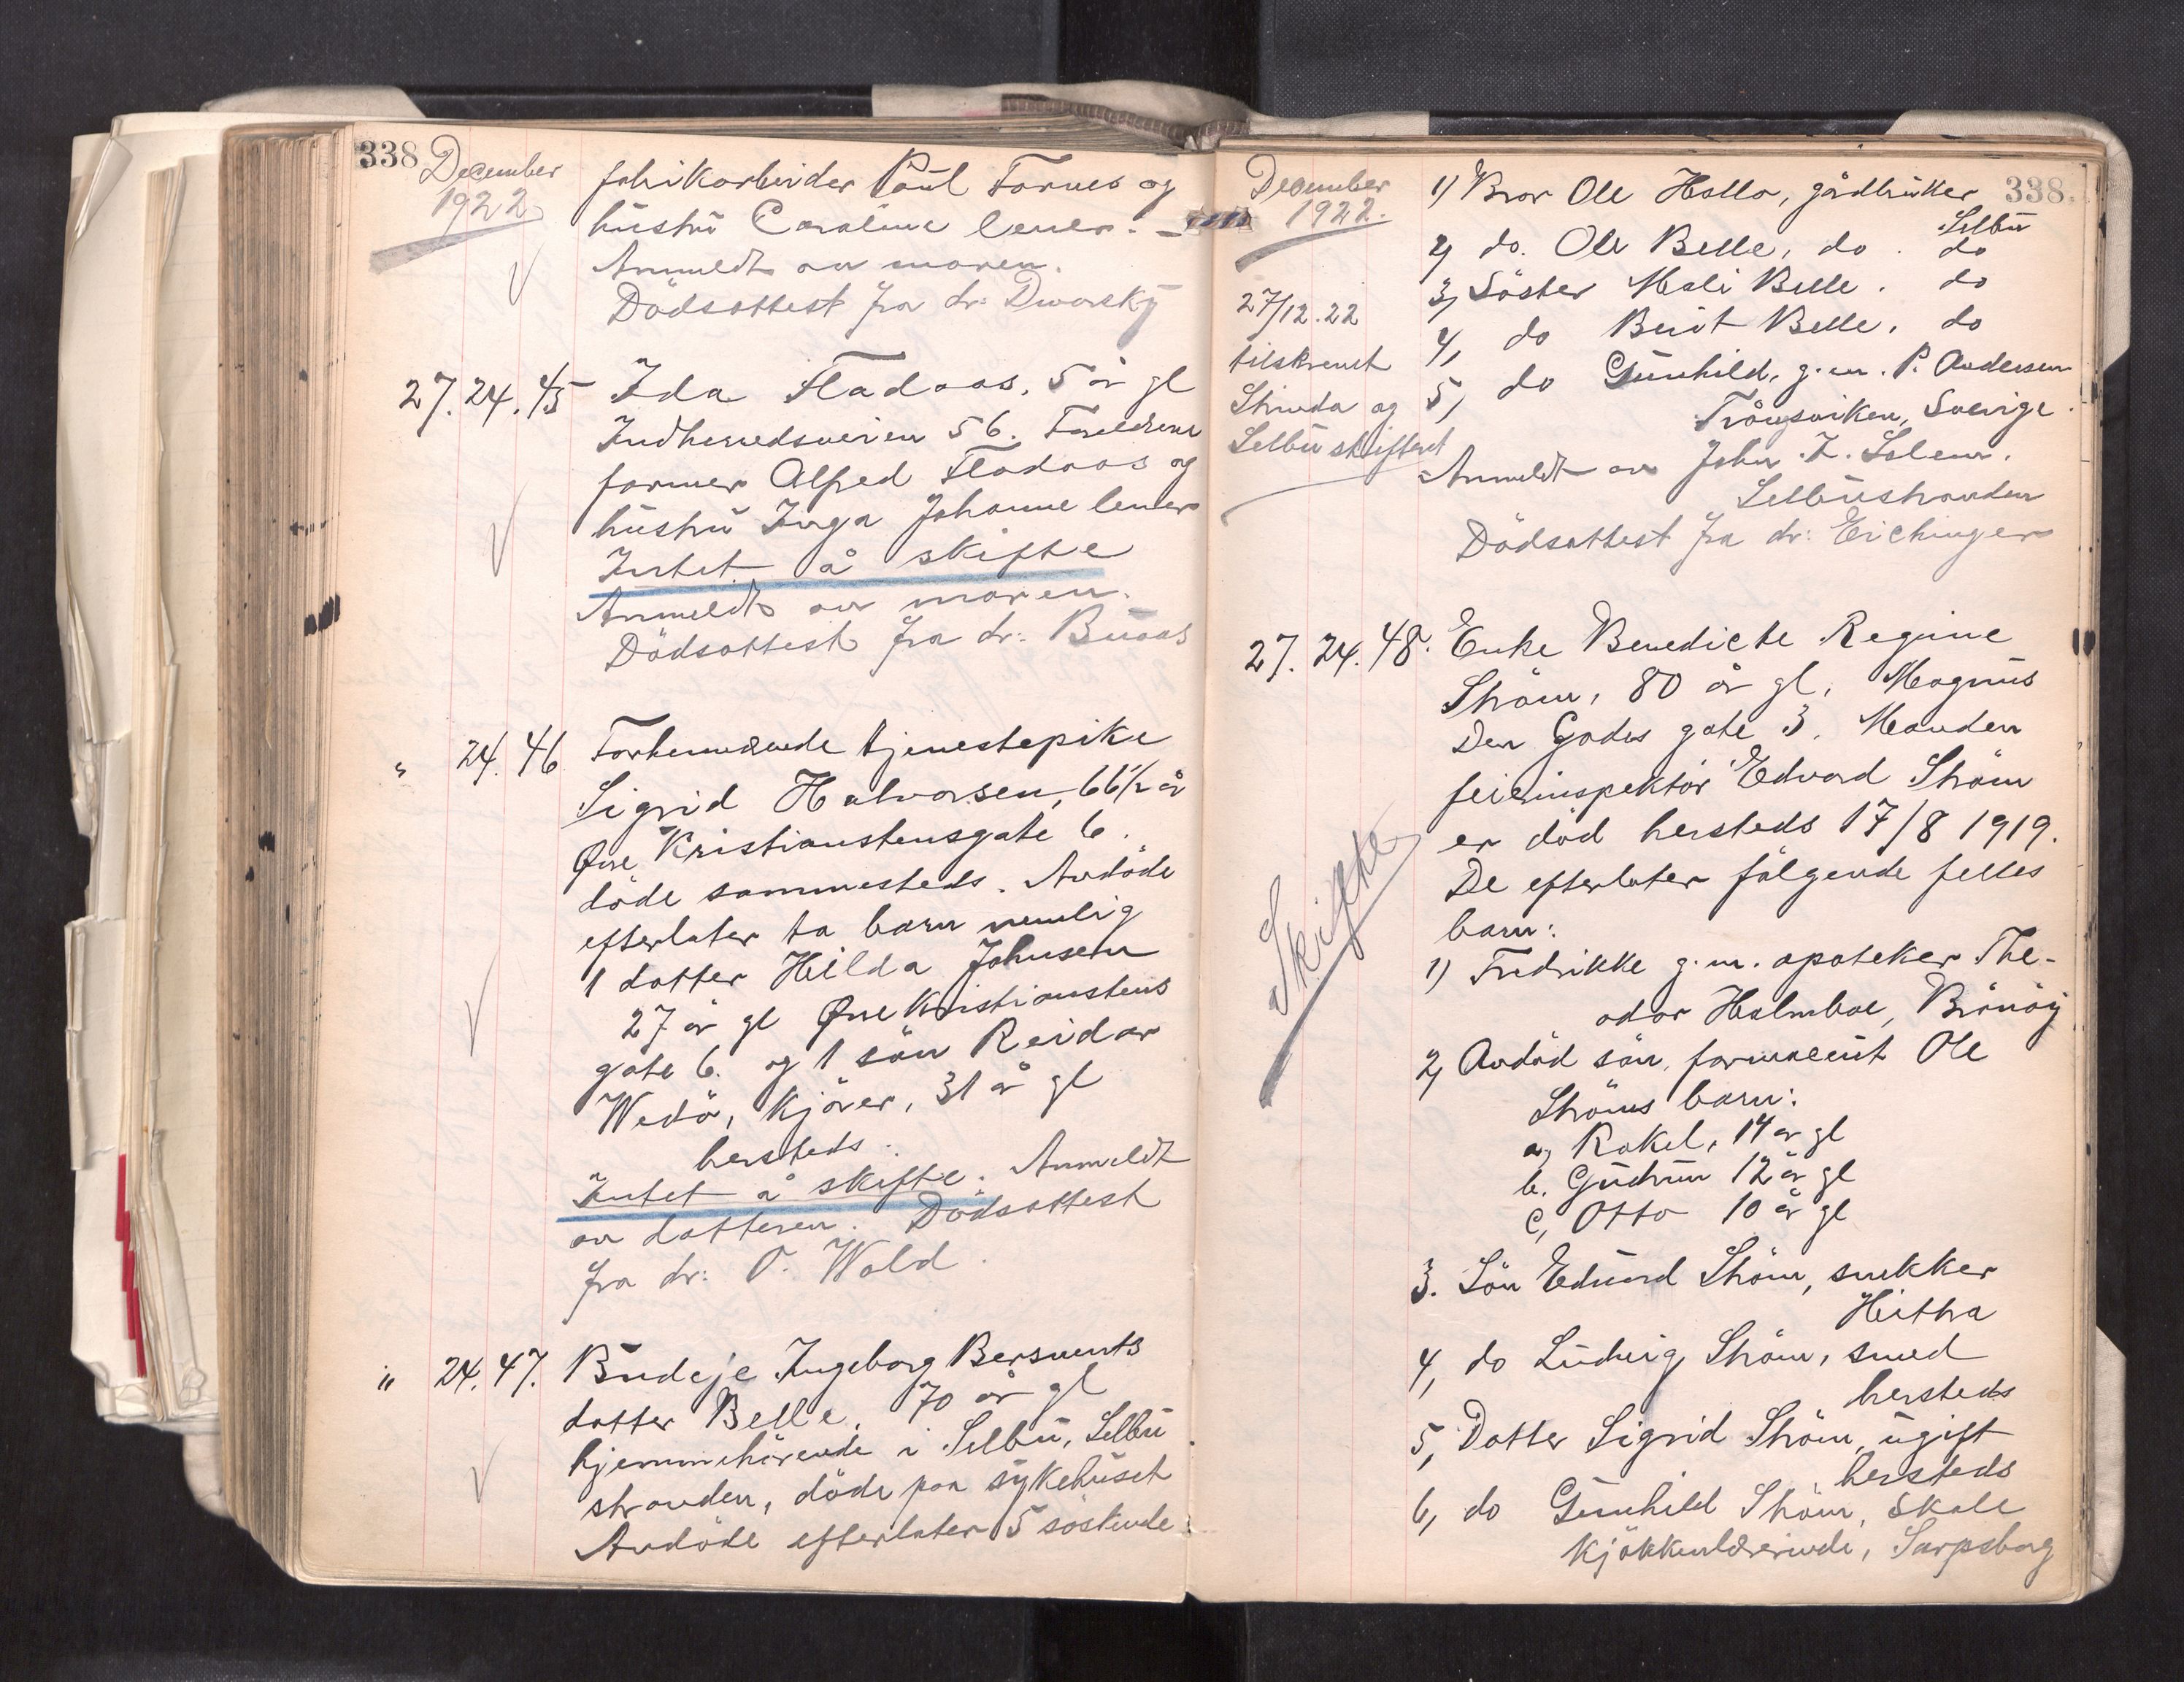 338
December
1922
fabrikarbeider Paul Farnes og
hustru Caroline lever.
Anmeldt av moren.
Dödsattest fra dr: Dworsky
27. 24. 45 Ida Fladaas, 5 år gl
Indherredsveien 56. Foreldrene
former Alfred Fladaas og
hustru Inga Johanne lever
Intet å skifte
Anmeldt av moren.
Dödsattest fra dr: Buaas
" 24. 46 Forhenværende tjenestepike
Sigrid Halvorsen, 66 1/2 år
Øvre Kristianstensgate 6.
döde sammesteds. Avdöde
efterlater to barn nemlig
1 datter Hilda Johnsen
27 år gl Øvre Kristianstens
gate 6. og 1 sön Reidar
Wedö, Kjörer, 31 år gl
hersteds.
Intet å skifte. Anmeldt
av datteren. Dödsattest
fra dr: O. Wold.
" 24. 47. Budeje Ingeborg Bersvents
datter Belle, 70 år gl
hjemmehörende i Selbu, Selbu
stranden, döde paa sykehuset
Avdöde efterlater 5 söskende:
December
1922.
338.
1) Bror Ole Halla, gårdbruker
Selbu
2, do. Ole Belle, do. do
3, Söster Mali Belle. do
4, do Berit Belle, do
5, do Gunhild, g.m. P. Andersen
Trångsviken, Sverige.
27/12.22
tilskrevet
Strinda og
Selbu skifteret
Anmeldt av John . Solem.
Selbustranden
Dödsattest fra dr: Eichinger
27. 24. 48. Enke Benedicte Regine
Ström, 80 år gl, Magnus
Den Godes gate 3. Manden
feierinspektör Edvard Ström
er död hersteds 17/8 1919.
De efterlater fölgende felles
barn:
Skifte
1) Fredrikke g.m. apoteker The-
odor Holmboe, Brönöy
2, Avdöd sön, farmaceut Ole
Ströms barn:
a, Rakel, 14 år gl
b. Gudrun 12 år gl
c, Otto 10 år gl
3. Sön Edvard Ström, snekker
Hitra
4, do Ludvig Ström, smed
hersteds
5, Datter Sigrid Ström, ugift
hersteds
6, do Gunhild Ström, Skole
kjökkenlærerinde, Sarpsborg